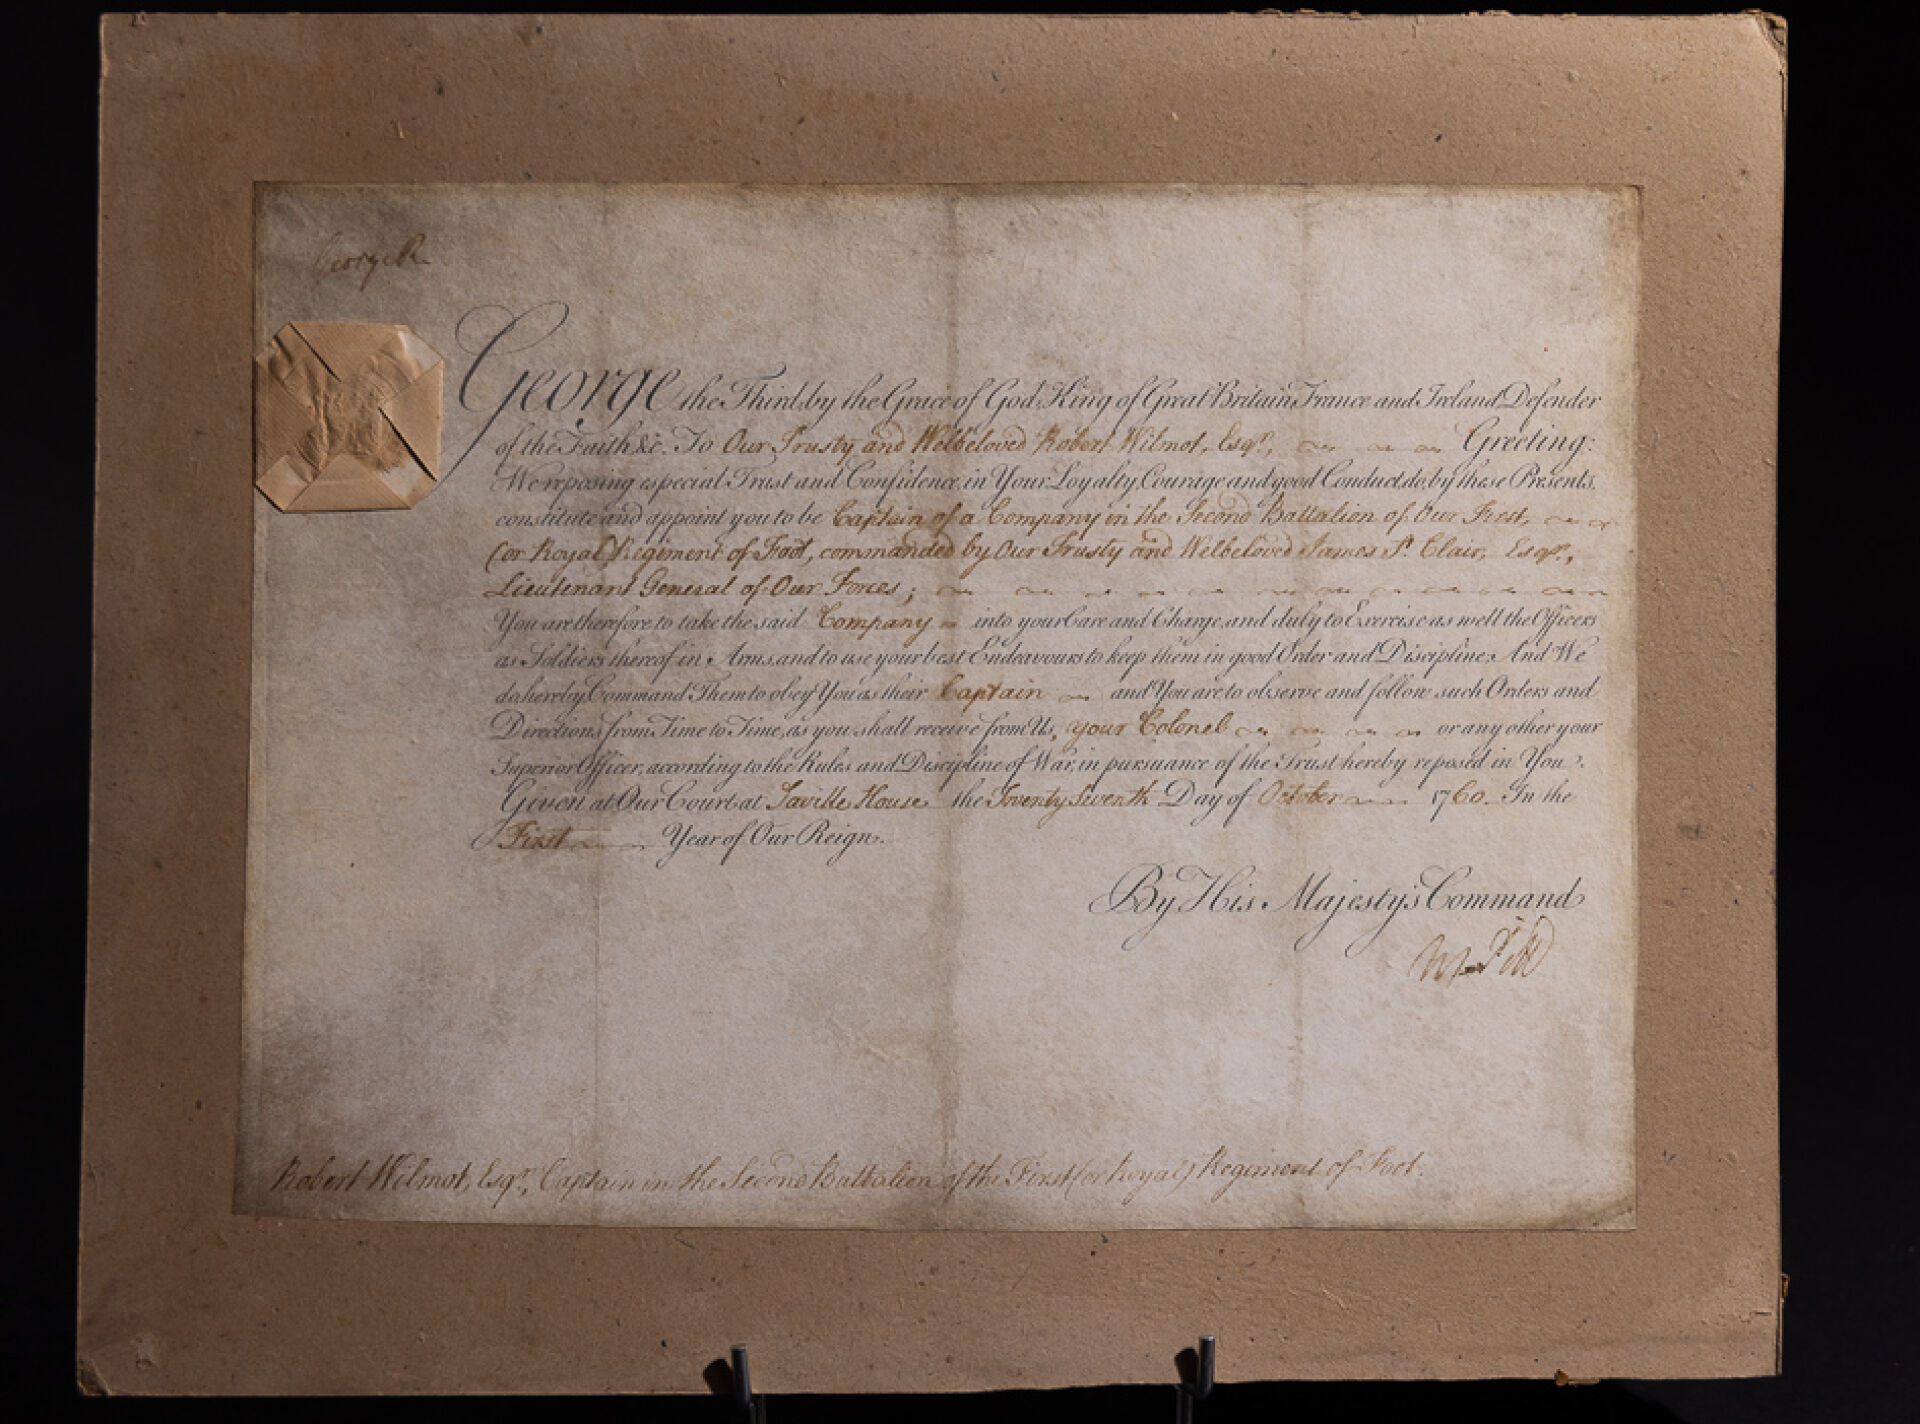 George R.
George the Third, by the Grace of God, King of Great Britain, France and Ireland, Defender
of the Faith &c. To Our Trusty and Welbeloved Robert Wilmot, Esqr., Greeting:
We reposing especial Trust and Confidence in Your Loyalty, Courage and good Conduct, do, by these Presents,
constitute and appoint you to be Captain of a Company in the Second Battalion of Our First,
(or Royal) Regiment of Foot, commanded by Our Trusty and Welbeloved James St. Clair, Esqr.,
Lieutenant General of Our Forces;
You are therefore to take the said Company into your Care and Charge, and duly to Exercise as well the Officers
as Soldiers thereof in Arms, and to use your best Endeavours to keep them in good Order and Discipline; And We
do hereby Command Them to obey You as their Captain and You are to observe and follow such Orders and
Directions from Time to Time, as you shall receive from Us, your Colonel or any other your
Superior Officer, according to the Rules and Discipline of War, in pursuance of the Trust hereby reposed in You.
Given at Our Court at Saville House the Twenty Seventh Day of October 1760. In the
First Year of Our Reign.
By His Majesty's Command
W Pitt
Robert Wilmot, Esqr., Captain in the Second Battalion of the First (or Royal) Regiment of Foot.